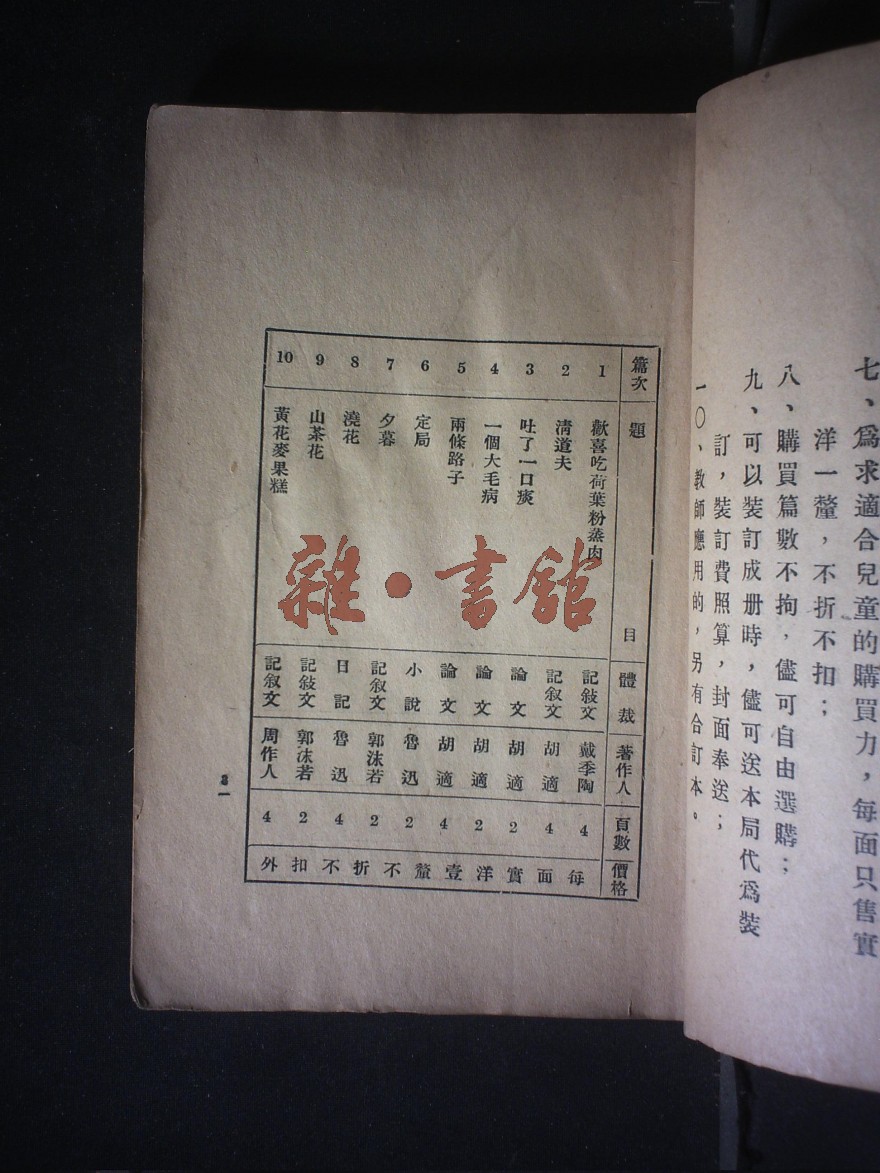 七、爲求適合兒童的購買力，每面只售實
洋一釐，不折不扣；
八、購買篇數不拘，儘可自由選購；
九、可以裝訂成册時，儘可送本局代爲裝
訂，裝訂費照算，封面奉送；
一〇、教師應用的，另有合訂本。
篇次 題目 體裁 著作人 頁數 價格
1 歡喜吃荷葉粉蒸肉 記敍文 戴季陶 4
2 清道夫 記叙文 胡適 4
3 吐了一口痰 論文 胡適 2
4 一個大毛病 論文 胡適 2
5 兩條路子 論文 胡適 4
6 定局 小說 魯迅 2
7 夕暮 記叙文 郭沫若 2
8 澆花 日記 魯迅 4
9 山茶花 記敍文 郭沫若 2
10 黃花麥果糕 記叙文 周作人 4
每面實洋壹釐不折不扣外
雜·書館